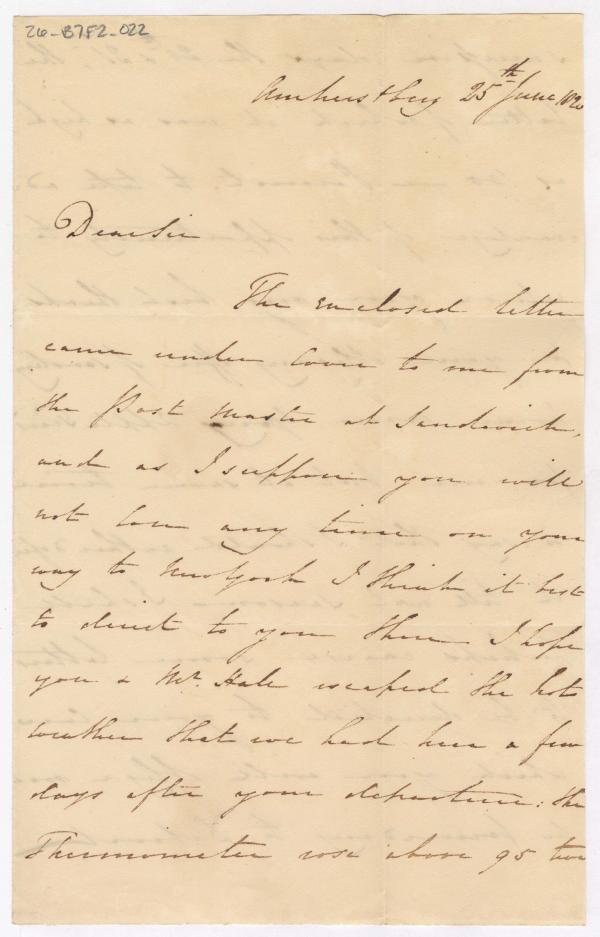 26-B7F2-022
Amherstburg 25th June 1820
Dear Sir
The enclosed letter
came under cover to me from
the Post Master at Sandwich,
and as I suppose you will
not lose any time on your
way to New York I think it best
to direct to you there I hope
you & Mr. Hale escaped the hot
weather that we had here a few
days after your departure: the
Thermometer rose above 95 two